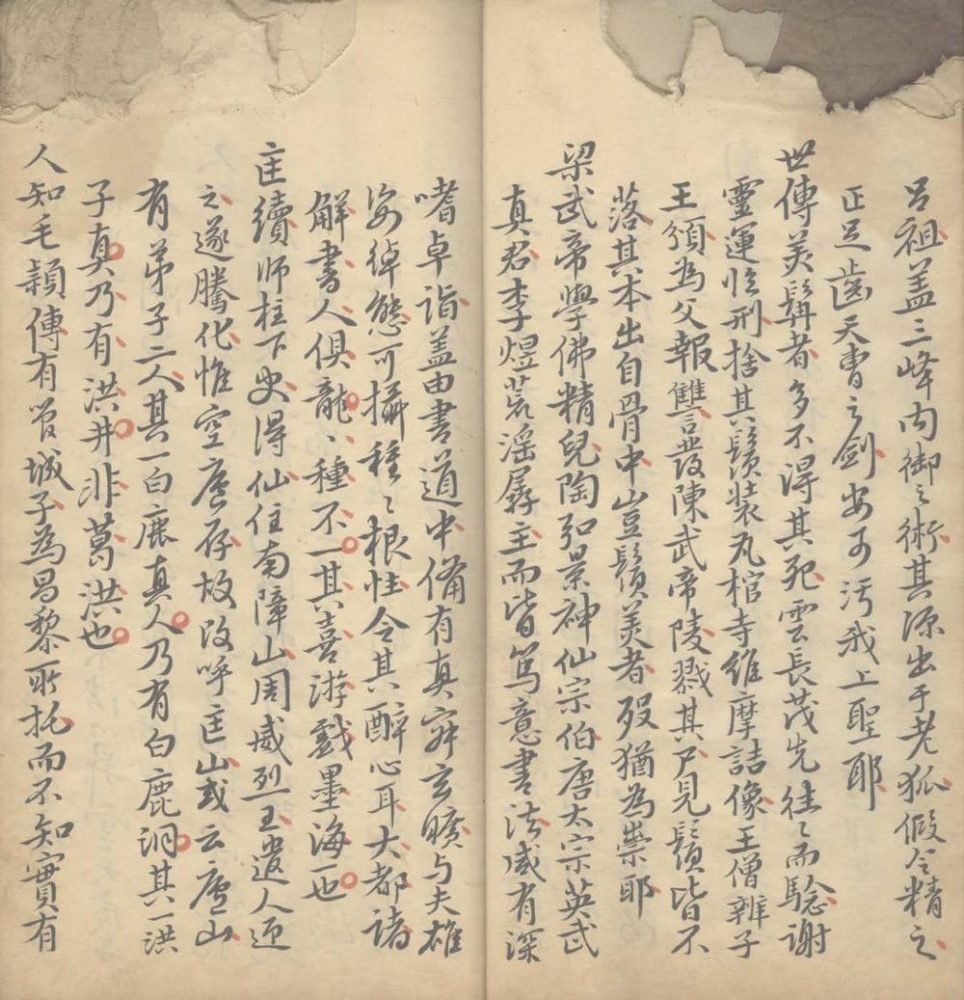 呂祖盖三峰内御之術其源出于老狐假令精之
正足齒天曹之劍安可污我上聖耶
世傳美髯者多不得其死雲長茂先往〻而騐謝
靈運臨刑捨其鬚装瓦棺寺維摩詰像王僧辨子
王頒為父報讐發陳武帝陵戮其尸見鬚皆不
落其本出自骨中豈鬚美者歿猶為祟耶
梁武帝學佛精兒陶弘景神仙宗伯唐太宗英武
真君李煜荒滛孱主而皆篤意書法咸有深
嗜卓詣盖由書道中備有真寂玄曠与夫雄
姿綽態可攝種〻根性令其醉心耳大都諸
解書人俱龍〻種不一其喜游戲墨海一也
匡續师柱下史得仙住南障山周威烈王遣人迎
之遂騰化惟空廬存故汝呼匡山或云廬山
有弟子二人其一白鹿真人乃有白鹿洞其一洪
子真乃有洪井非葛洪也
人知毛穎傳有管城子為昌黎所托而不知實有